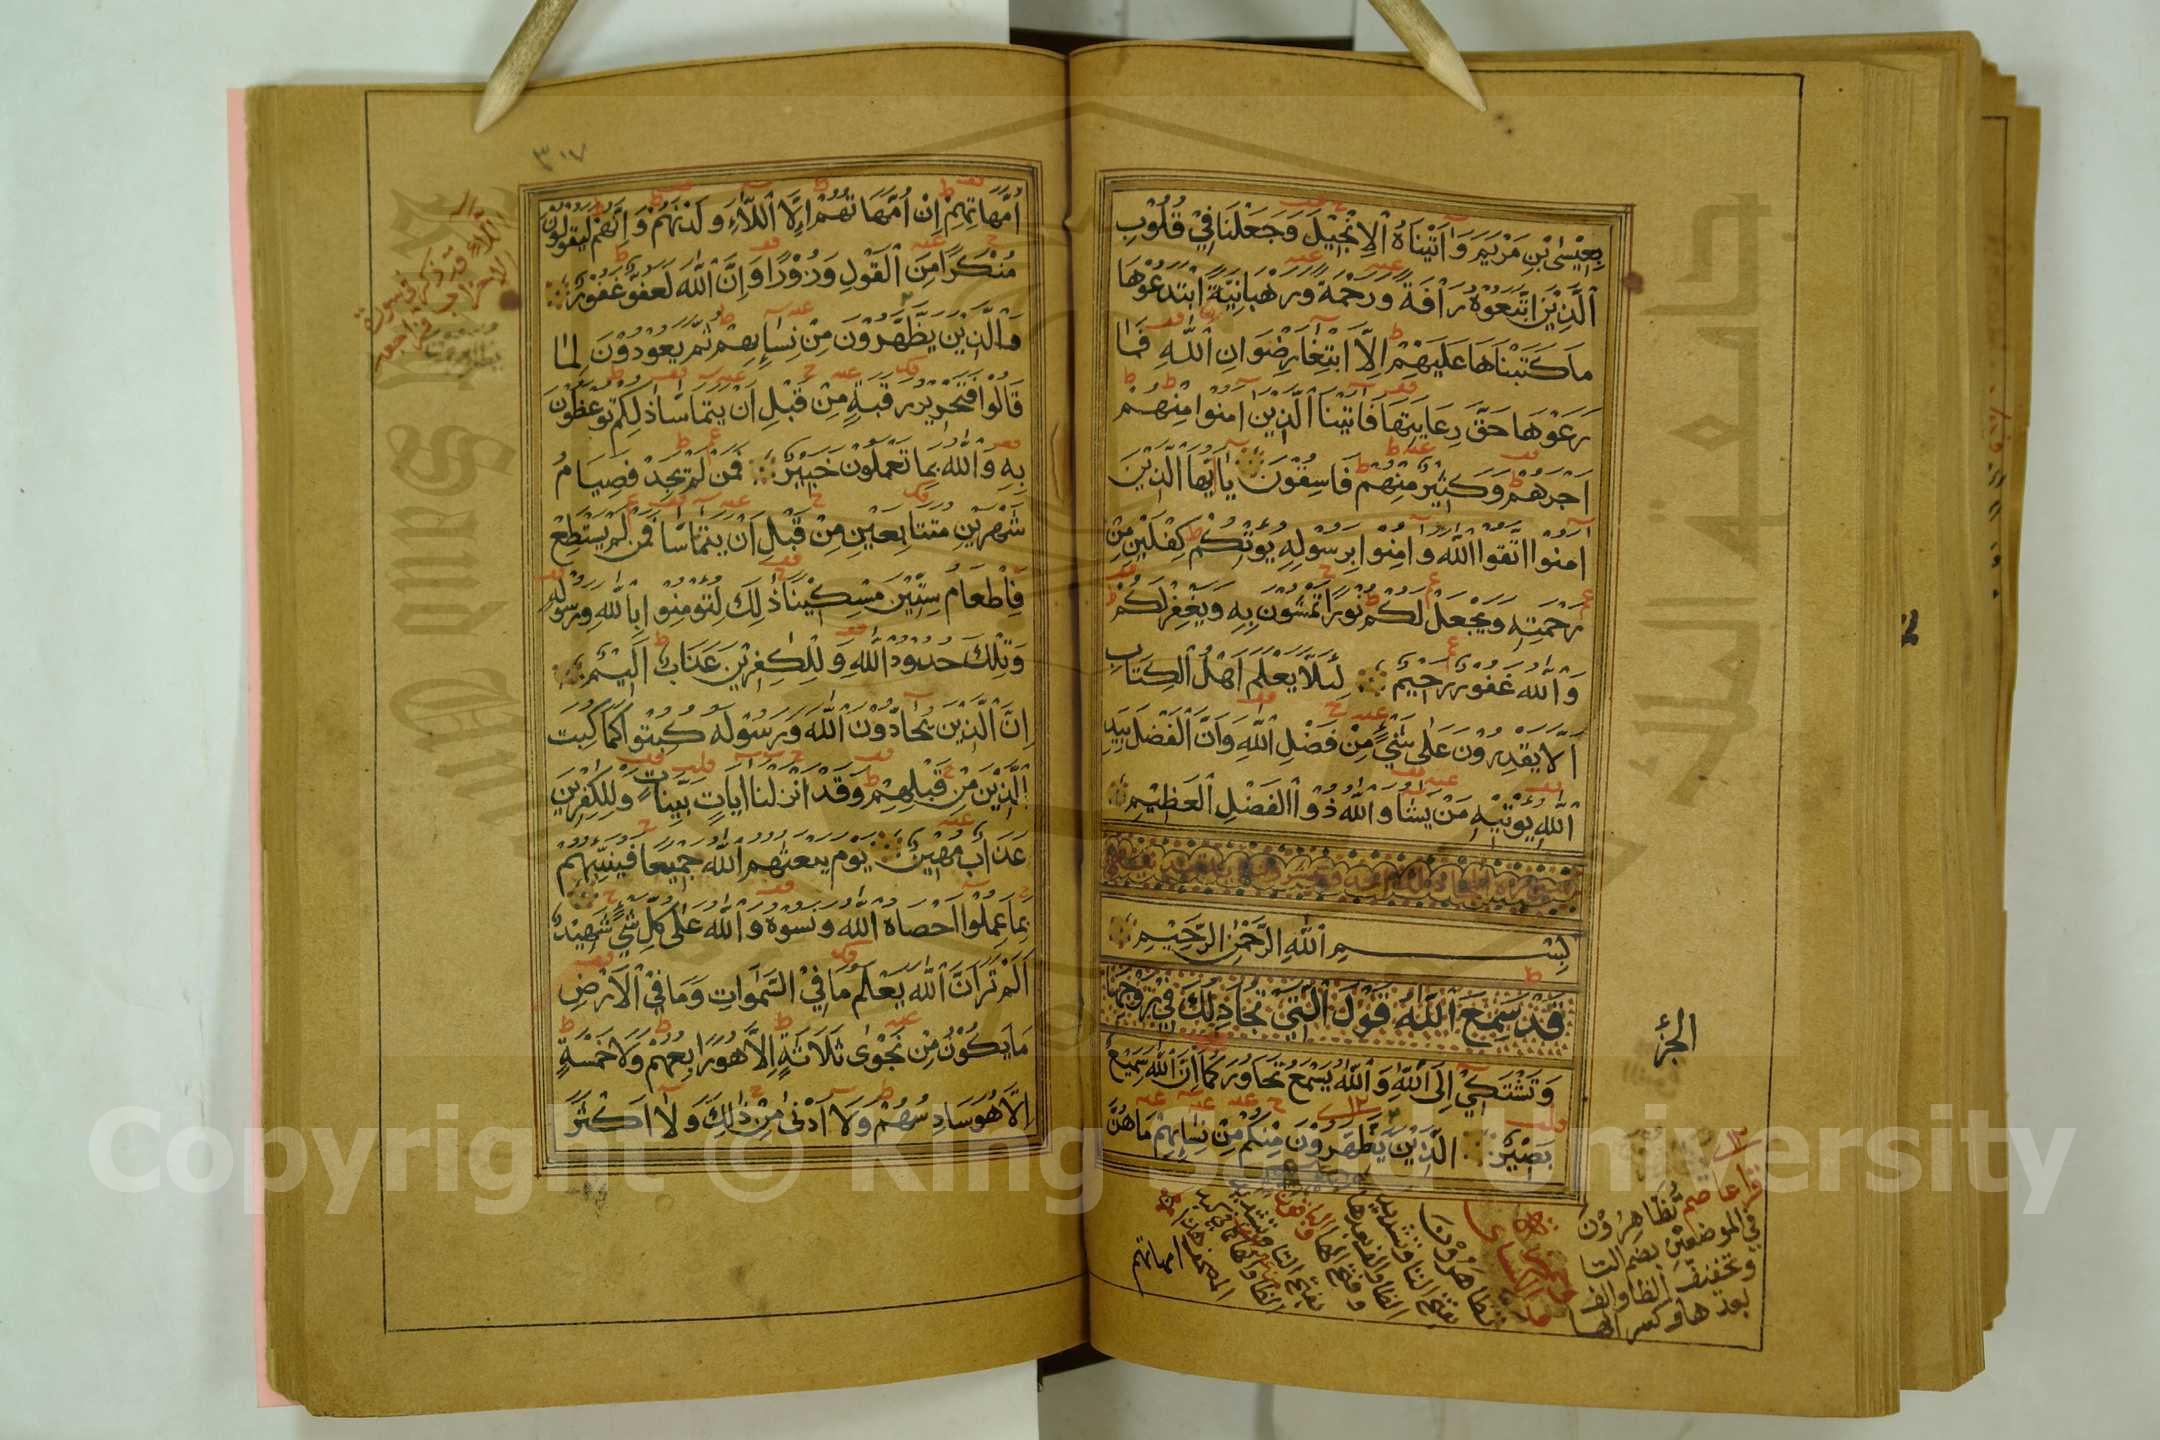 بِعِيْسَى بْنِ مَرْيَمَ وَآتَيْنَاهُ الْاِنْجِيْلَ وَجَعَلْنَا فِيْ قُلُوْبِ
الَّذِيْنَ اتَّبَعُوْهُ رَاْفَةً وَّرَحْمَةً وَّرَهْبَانِيَّةً ابْتَدَعُوْهَا
مَا كَتَبْنَاهَا عَلَيْهِمْ اِلَّا ابْتِغَا رِضْوَانِ اللّٰهِ فَمَا
رَعَوْهَا حَقَّ رِعَايَتِهَا فَاٰتَيْنَا الَّذِيْنَ اٰمَنُوْا مِنْهُمْ
اَجْرَهُمْ وَكَثِيْرٌ مِّنْهُمْ فَاسِقُوْنَ يَا اَيُّهَا الَّذِيْنَ
اٰمَنُوْا اتَّقُوا اللّٰهَ وَاٰمِنُوْا بِرَسُوْلِهِ يُؤْتِكُمْ كِفْلَيْنِ مِنْ
رَحْمَتِهِ وَيَجْعَلْ لَكُمْ نُوْرًا تَمْشُوْنَ بِهِ وَيَغْفِرْ لَكُمْ
وَاللّٰهُ غَفُوْرٌ رَّحِيْمٌ لِئَلَّا يَعْلَمَ اَهْلُ الْكِتَابِ
اَلَّا يَقْدِرُوْنَ عَلَى شَيْءٍ مِّنْ فَضْلِ اللّٰهِ وَاَنَّ الْفَضْلَ بِيَدِ
اللّٰهِ يُؤْتِيْهِ مَنْ يَّشَا وَاللّٰهُ ذُوْ الْفَضْلِ الْعَظِيْمِ
بِسْمِ اللّٰهِ الرَّحْمٰنِ الرَّحِيْمِ
قَدْ سَمِعَ اللّٰهُ قَوْلَ الَّتِيْ تُجَادِلُكَ فِيْ زَوْجِهَا
وَتَشْتَكِيْ اِلَى اللّٰهِ وَاللّٰهُ يَسْمَعُ تَحَاوُرَكُمَا اِنَّ اللّٰهَ سَمِيْعٌ
بَصِيْرٌ الَّذِيْنَ يَظَّهَّرُوْنَ مِنْكُمْ مِّنْ نِسَايِهِمْ مَا هُنَّ
الجزء
١٢
قرا عاصم يُظَاهِرُوْنَ
في الموضعين بضم اليا
وتخفيف الظا والف
بعدها وكسر الها
امهاتهم
٣٠٧
اُمَّهَاتِهِمْ اِنْ اُمَّهَاتُهُمْ اِلَّا اللَّاءِ وَلَدْنَهُمْ وَاِنَّهُمْ لَيَقُوْلُوْنَ
مُنْكَرًا مِّنَ الْقَوْلِ وَزُوْرًا وَاِنَّ اللّٰهَ لَعَفُوٌّ غَفُوْرٌ
وَالَّذِيْنَ يَظَّهَّرُوْنَ مِنْ نِسَايِهِمْ ثُمَّ يَعُوْدُوْنَ لِمَا
قَالُوْا فَتَحْرِيْرُ رَقَبَةٍ مِّنْ قَبْلِ اَنْ يَّتَمَاسَّا ذٰلِكُمْ تُوْعَظُوْنَ
بِهِ وَاللّٰهُ بِمَا تَعْمَلُوْنَ خَبِيْرٌ فَمَنْ لَّمْ يَجِدْ فَصِيَامُ
شَهْرَيْنِ مُتَتَابِعَيْنِ مِنْ قَبْلِ اَنْ يَّتَمَاسَّا فَمَنْ لَّمْ يَسْتَطِعْ
فَاِطْعَامُ سِتِّيْنَ مِسْكِيْنًا ذٰلِكَ لِتُؤْمِنُوْا بِاللّٰهِ وَرَسُوْلِهِ
وَتِلْكَ حُدُوْدُ اللّٰهِ وَلِلْكٰفِرِيْنَ عَذَابٌ اَلِيْمٌ
اِنَّ الَّذِيْنَ يُحَادُّوْنَ اللّٰهَ وَرَسُوْلَهُ كُبِتُوْا كَمَا كُبِتَ
الَّذِيْنَ مِنْ قَبْلِهِمْ وَقَدْ اَنْزَلْنَا اٰيَاتٍ بَيِّنَاتٍ وَلِلْكٰفِرِيْنَ
عَذَابٌ مُّهِيْنٌ يَوْمَ يَبْعَثُهُمُ اللّٰهُ جَمِيْعًا فَيُنَبِّئُهُمْ
بِمَا عَمِلُوْا اَحْصَاهُ اللّٰهُ وَنَسُوْهُ وَاللّٰهُ عَلٰى كُلِّ شَيْءٍ شَهِيْدٌ
اَلَمْ تَرَ اَنَّ اللّٰهَ يَعْلَمُ مَا فِيْ السَّمٰوَاتِ وَمَا فِيْ الْاَرْضِ
مَا يَكُوْنُ مِنْ نَّجْوٰى ثَلَاثَةٍ اِلَّا هُوَ رَابِعُهُمْ وَلَا خَمْسَةٍ
اِلَّا هُوَ سَادِسُهُمْ وَلَا اَدْنٰى مِنْ ذٰلِكَ وَلَا اَكْثَرَ
اللاء قد ذكر في سورة
الاحزاب فراجعه
جامعة الملك
King Saud
Copyright © King Saud University